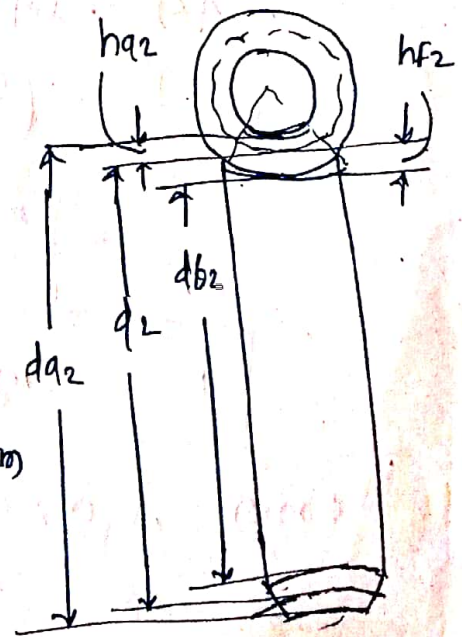 ha2
hf2
db2
d2
da2
m)